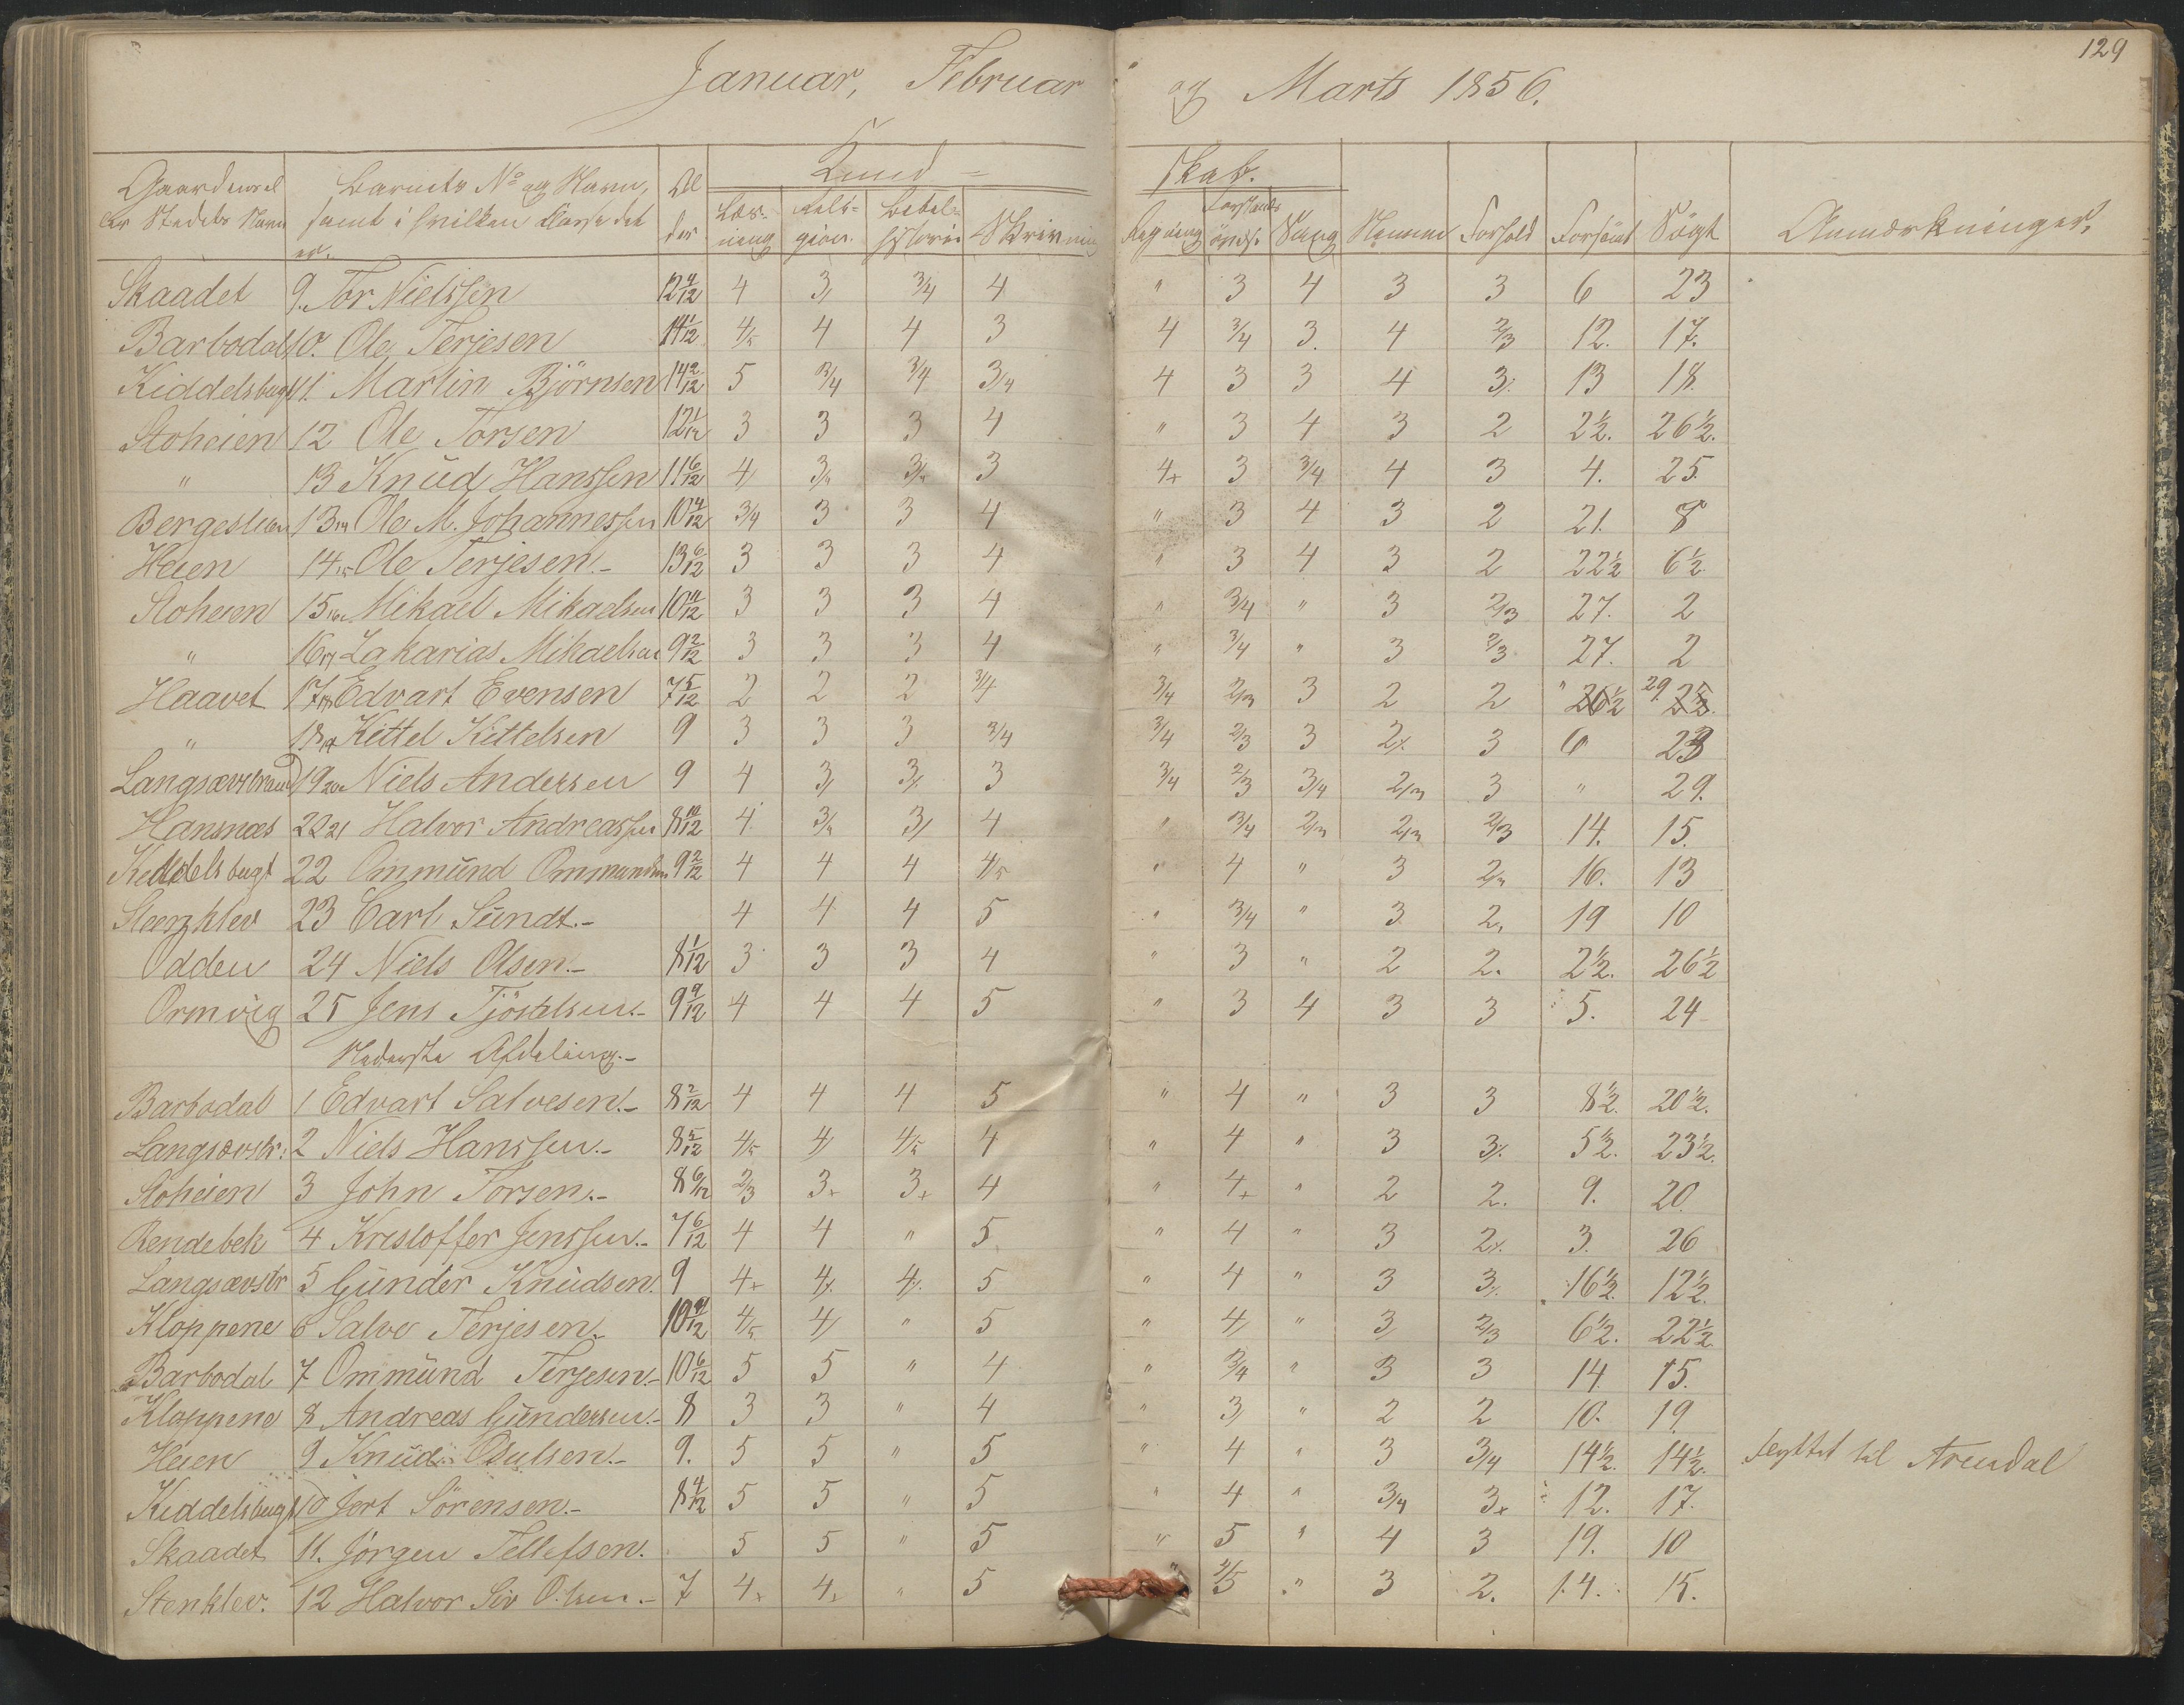 129
Januar, Februar og Marts 1856.
Gaardens el- Barnets No og Navn, Al Kund= skab.
ler Stedets Navn samt i hvilken Klasse det der Læs- Reli= Bibel= Skrivning Regning Forstands Sang Nemme Forhold Forsömt Sögt Anmærkninger.
er. ning gion. historie övelse
Skaadet 9. Tor Nielssen 12 4/12 4 3/ 3/4 4 " 3 4 3 3 6 23
Barbodal 10. Ole Terjesen 14 1/12 4/5 4 4 3 4 3/4 3. 4 2/3 12. 17.
Kiddelsbugt 11. Martin Björnsen 14 2/12 5 3/4 3/4 3/4 4 3 3 4 3/. 13 18
Stoheien 12 Ole Torsen 12 1/12 3 3 3 4 " 3 4 3 2 2½. 26½.
" 13 Knud Hanssen 11 6/12 4/ 3/4 3/4 3 4+ 3 3/4 4 3 4. 25.
Bergeslien 13 14 Ole M. Johannessen 10 4/12 3/4 3 3 4 " 3 4 3 2 21. 8
Heien 14 15 Ole Terjesen.- 13 6/12 3 3 3 4 " 3 4 3 2 22½ 6½
Stoheien 15 16 Mikael Mikaelsen 10 11/12 3 3 3 4 " 3/4 " 3 2/3 27. 2
" 16 17 Zakarias Mikaelsen 9 2/12 3 3 3 4 " 3/4 " 3 2/3 27. 2
Haavet 17 18 Edvart Evensen 7 5/12 2 2 2 3/4 3/4 2/3 3 2 2 " 26½ 29. 2½.
" 18 19 Kittel Kittelsen 9 3 3 3 3/4 3/4 2/3 3 2/. 3 6 23
Langsævstrand 19 20 Niels Andersen 9 4 3/ 3/. 3 3/4 2/3 3/4 2/3 3 " 29.
Hansnæs 20 21 Halvor Andreassen 8 10/12 4 3/4 3/ 4 " 3/4 2/3 2/3 2/3 14. 15.
Kiddelsbugt 22 Ommund Ommundsen 9 2/12 4 4 4 4/5 " 4 " 3 2/3 16. 13
Steenklev 23 Carl Sundt.- 4 4 4 5 " 3/4 " 3 2, 19 10
Odden 24 Niels Olsen.- 8 1/12 3 3 3 4 " 3 " 2 2. 2½. 26½
Ormvig 25 Jens Tjöstelsen.- 9 9/12 4 4 4 5 " 3 4 3 3 5. 24
Nederste Afdeling.-
Barbodal 1 Edvart Salvesen.- 8 2/12 4 4 4 5 " 4 " 3 3 8½. 20½.
Langsævstr: 2 Niels Hanssen.- 8 5/12 4/5 4/ 4/5 4 " 4 " 3 3/. 5½. 23½.
Stoheien 3 John Torsen.- 8 6/12 2/3 3+ 3+ 4 " 4+ " 2 2. 9. 20.
Rendebek 4 Kristoffer Jenssen.- 7 6/12 4 4 " 5 " 4 " 3 2/. 3. 26
Langsævstr 5 Gunder Knudsen. 9 4+ 4/. 4/. 5 " 4 " 3 3/. 16½. 12½.
Kloppene 6 Salve Terjesen.- 10 9/12 4/5 4/ " 5 " 4/ " 3/ 2/3 6½. 22½
Barbodal 7 Ommund Terjesen.- 10 6/12 5 5 " 4 " 3/4 " 3 3 14 15.
Kloppene 8 Andreas Gundersen.- 8 3 3 " 4 " 3/ " 2 2 10. 19.
Heien 9 Knud Osulsen.- 9. 5 5 " 5 " 4 " 3 3/4 14½. 14½. flyttet til Arendal
Kiddelsbugt 10 Jert Sörensen.- 8 4/12 5 5 " 5 " 4 " 3/4 3+ 12. 17.
Skaadet 11. Jörgen Tellefsen. 5 5 " 5 " 5 " 4 3 19. 10
Stenklev. 12 Halvor Siv Olsen.- 7 4+ 4+ " 5 " 4/5 " 3 2. 14. 15.